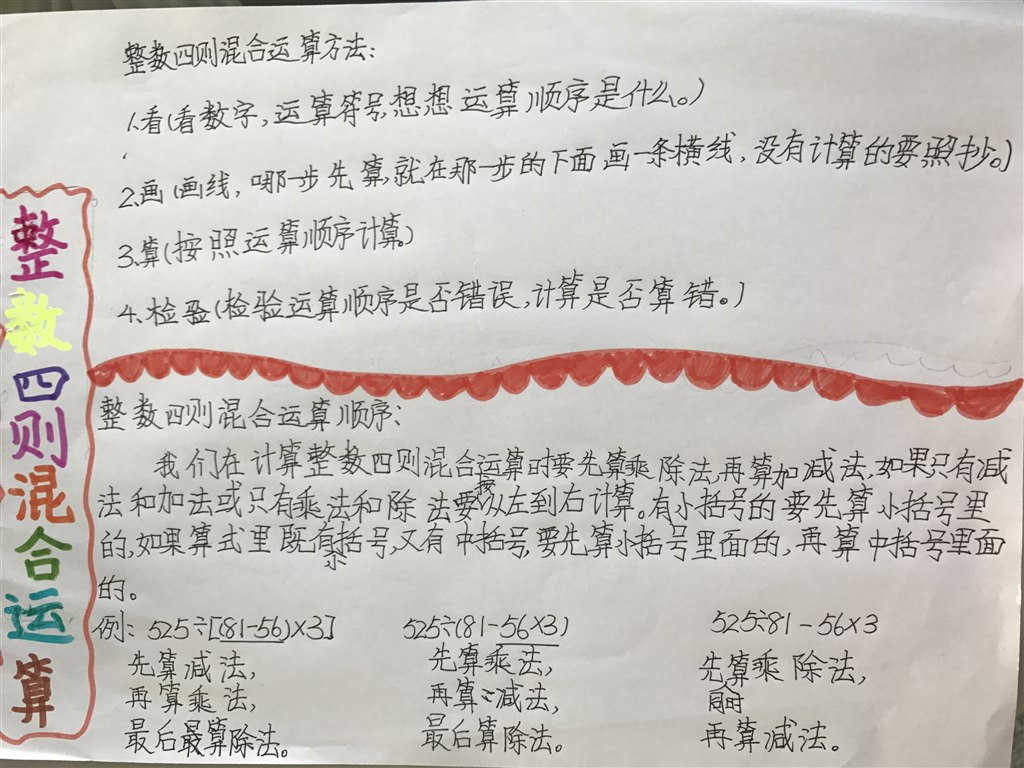 整数四则混合运算
整数四则混合运算方法：
1.看(看数字,运算符号,想想运算顺序是什么。)
2.画(画线，哪一步先算,就在那一步的下面画一条横线，没有计算的要照抄。)
3.算(按照运算顺序计算。)
4.检验(检验运算顺序是否错误,计算是否算错。)
整数四则混合运算顺序：
我们在计算整数四则混合运算时要先算乘除法,再算加减法,如果只有减
法和加法或只有乘法和除法要按从左到右计算。有小括号的要先算小括号里
的,如果算式里既有小括号,又有中括号,要先算小括号里面的,再算中括号里面
的。
例：525÷[(81-56)×3] 525÷(81-56×3) 525÷81-56×3
先算减法， 先算乘法， 先算乘除法，
再算乘法， 再算减法， 同时
最后最算除法。 最后算除法。 再算减法。